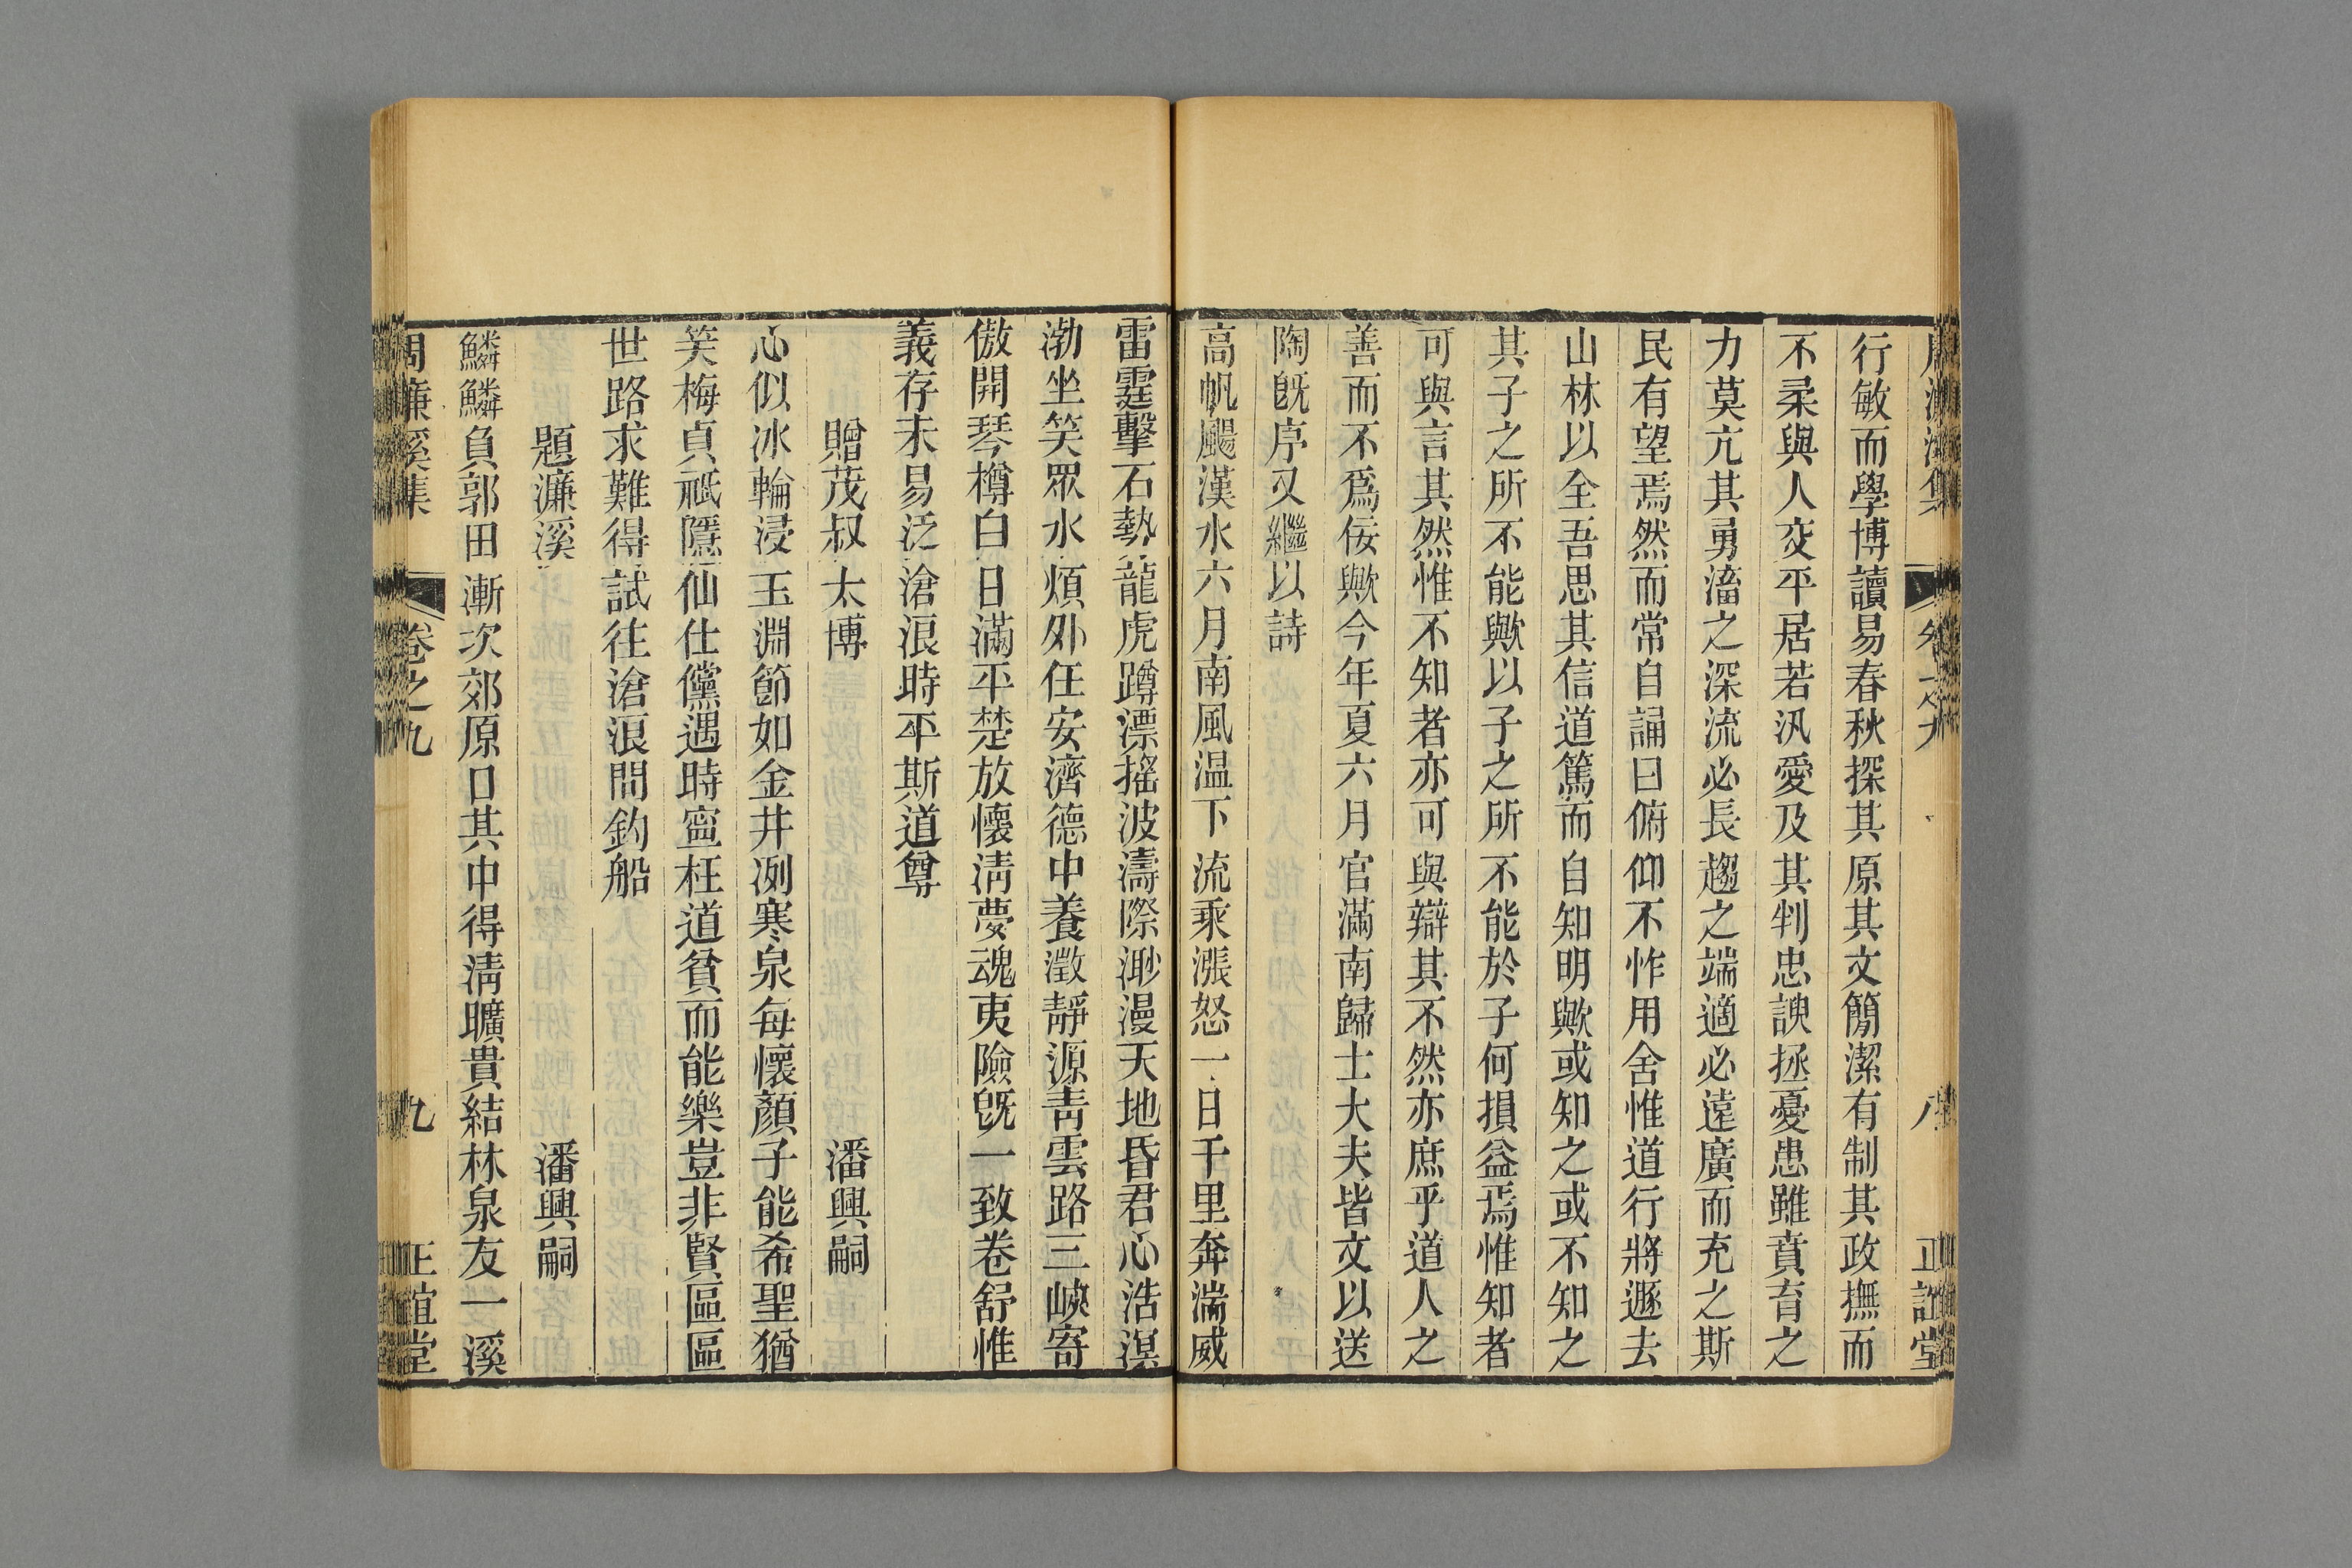 行敏而學博讀易春秋探其原其文簡潔有制其政撫而
不柔與人交平居若汎愛及其判忠諛拯憂患雖賁育之
力莫亢其勇滀之深流必長趨之端適必遠廣而充之斯
民有望焉然而常自誦曰俯仰不怍用舍惟道行將遯去
山林以全吾思其信道篤而自知明歟或知之或不知之
其子之所不能歟以子之所不能於子何損益焉惟知者
可與言其然惟不知者亦可與辯其不然亦庶乎道人之
善而不爲佞歟今年夏六月官滿南歸士大夫皆文以送
陶旣序又繼以詩
高帆颺漢水六月南風温下流乘漲怒一日千里奔湍威
雷霆擊石勢龍虎蹲漂搖波濤際渺漫天地昏君心浩溟
渤坐笑眾水煩外任安濟德中養澂靜源靑雲路三峽寄
傲開琴樽白日滿平楚放懷淸夢魂夷險旣一致卷舒惟
義存未易泛滄浪時平斯道尊
贈茂叔太博 潘興嗣
心似冰輪浸玉淵節如金井冽寒泉每懷顏子能希聖猶
笑梅眞祗隱仙仕儻遇時寧枉道貧而能樂豈非賢區區
世路求難得試往滄浪問釣船
題濂溪 潘興嗣
鱗鱗負郭田漸次郊原口其中得淸曠貴結林泉友一溪
周濂溪集 卷之九 九 正誼堂